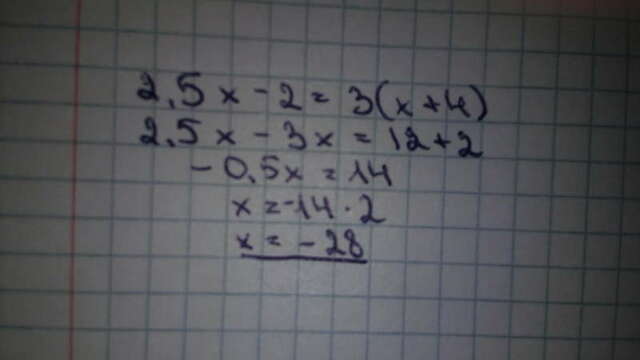 2.5x - 2 = 3(x+4)
2.5x - 3x = 12+2
- 0.5x = 14
x = -14 · 2
x = - 28